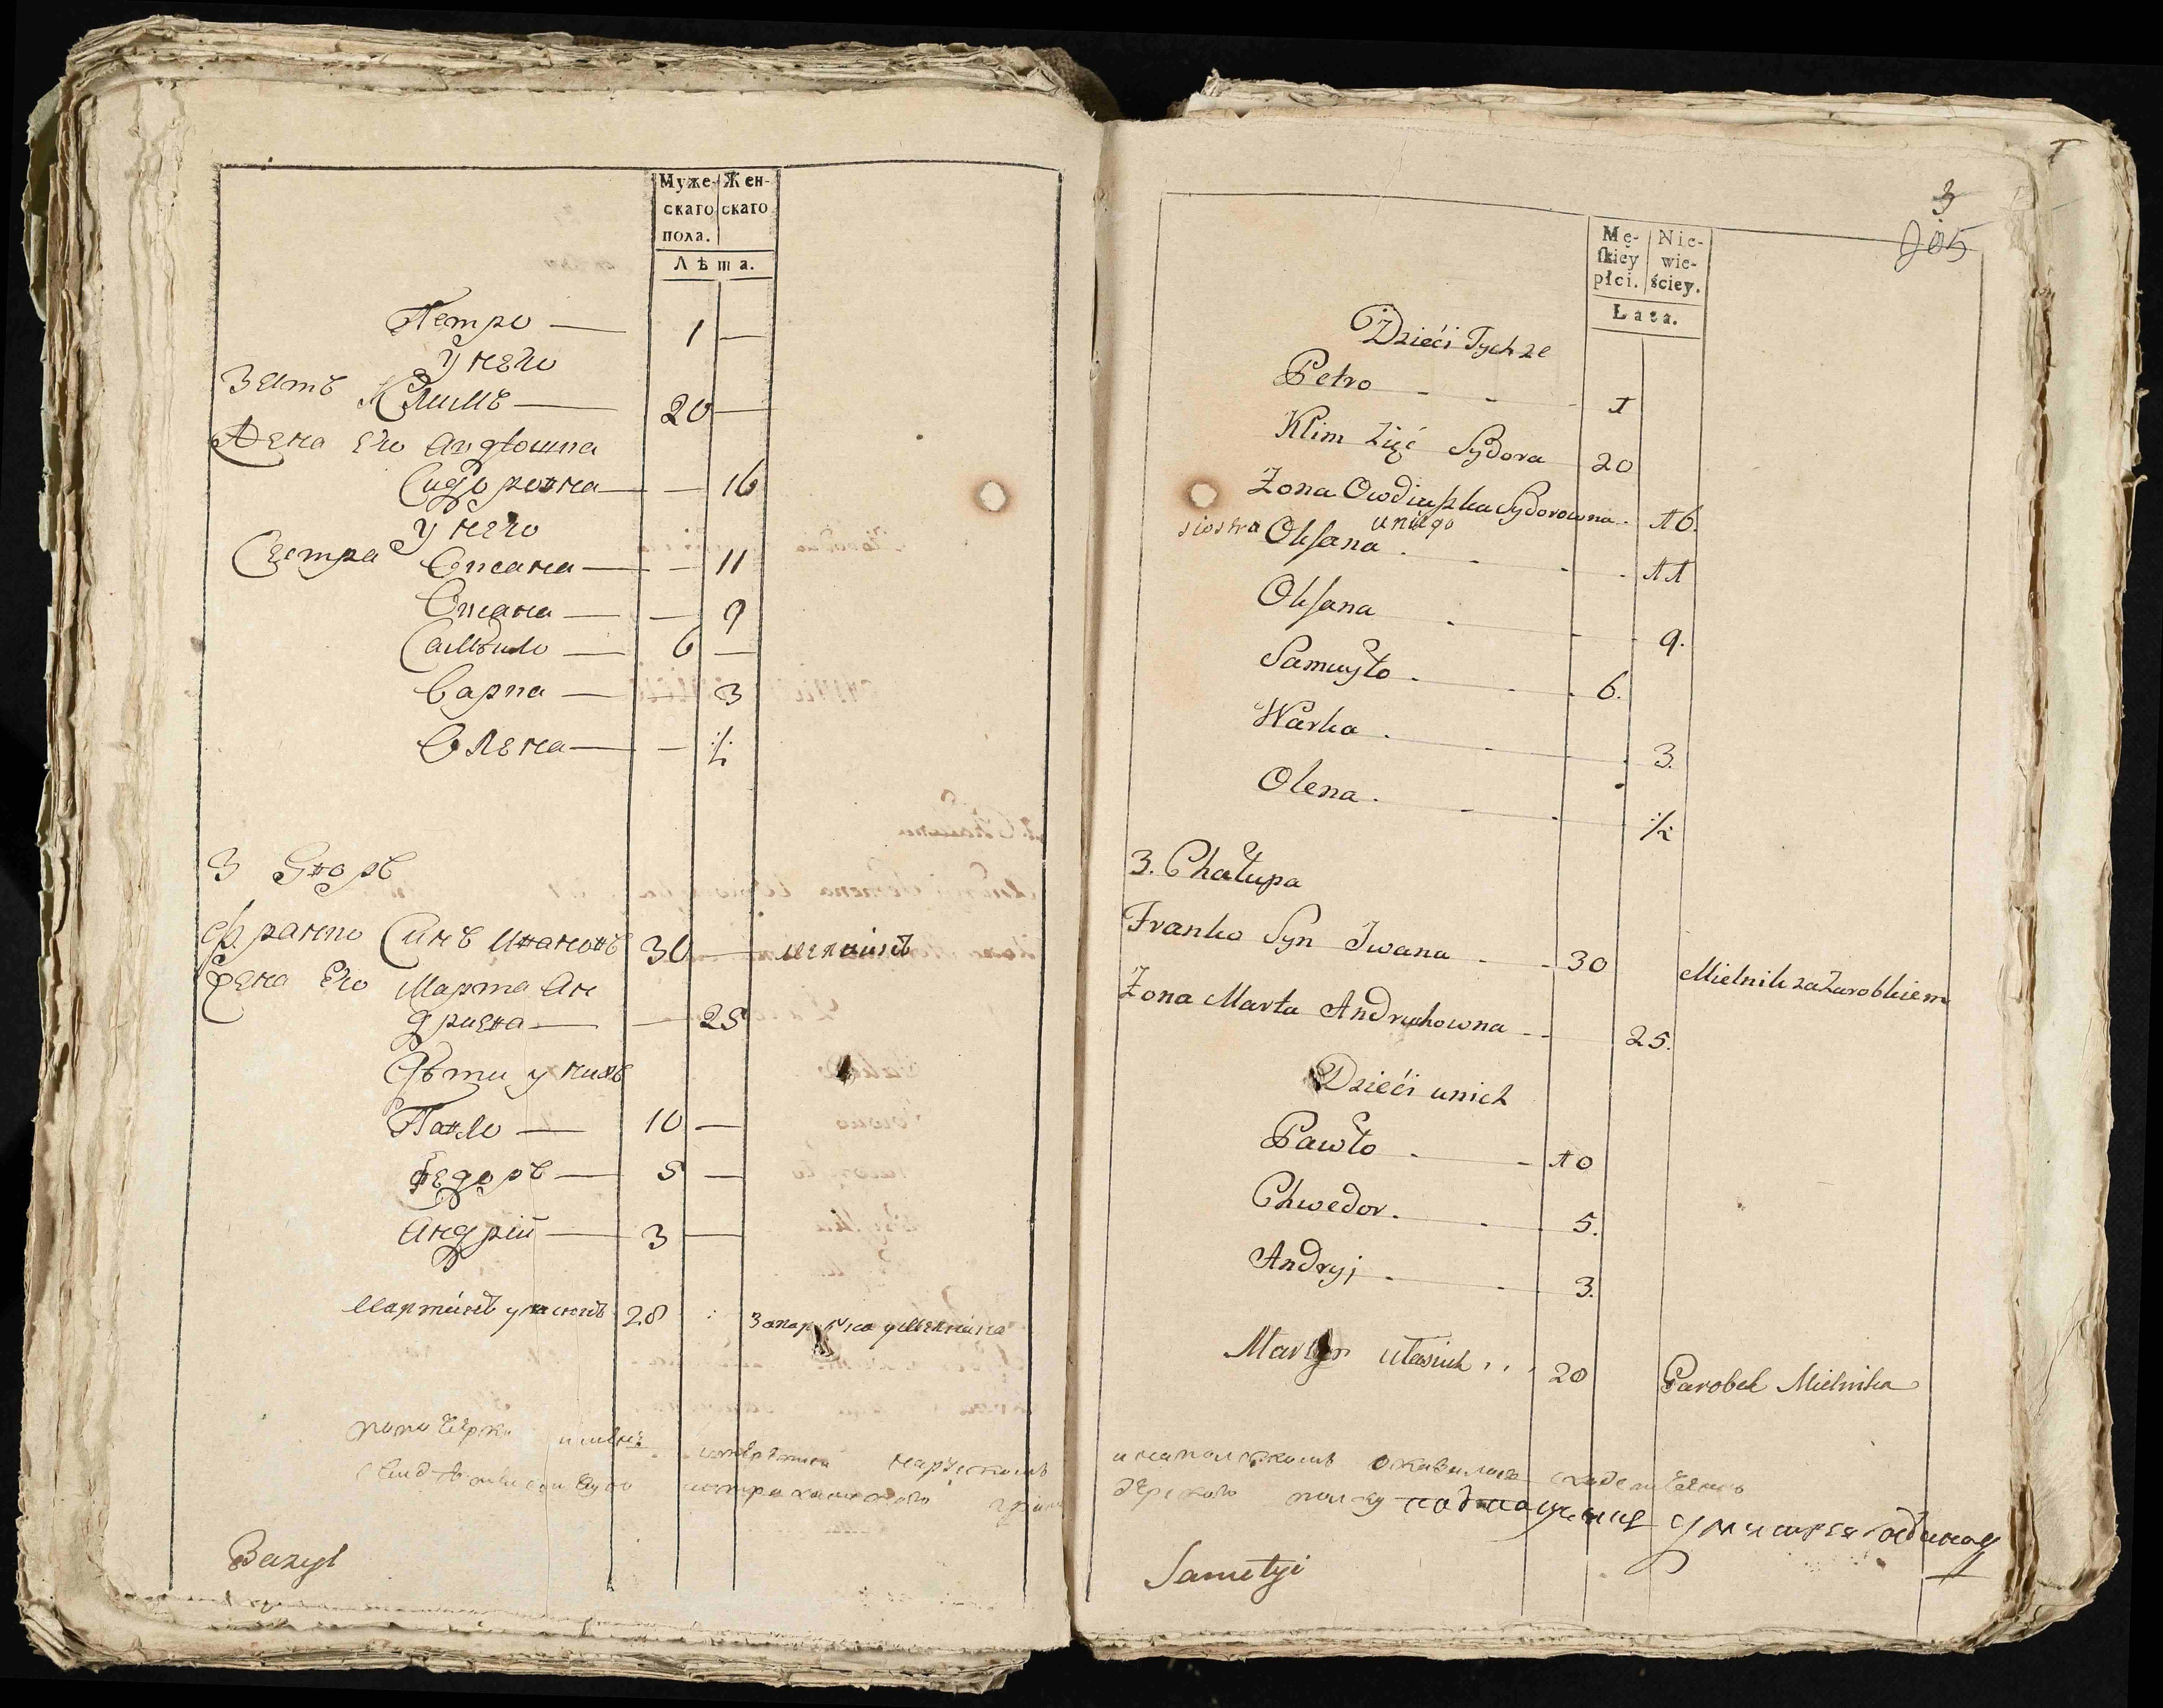 Муже-
скаго
пола.
Жен-
скаго
Лѣта.
Петро — 1 —
У него
Зять Климъ — 20 —
Жена Его Авдюшка
Сидоровна — — 16
У него
Сестра Оксана — — 11
Оксана — — 9
Самуило — 6 —
Варка — — 3
Олена — — ½
3 Дворъ
Франко Синъ Ивановъ 30 — мелникъ
Жена Его Марта Ан
дриева — — 25
Дѣти у нихъ
Павло — 10 —
Федоръ — 5 —
Андрій — 3 —
Мартинъ 28
Bazyl
3
205
Mę-
skiey
płci.
Nie-
wie-
ściey.
Lata.
Dzieći Tychże
Petro - - - 1
Klim Zięć Sydora 20
Zona Owdiuszka Sydorowna - 16.
u niego
siostra Oksana - - - 11
Oksana - - - 9.
Samuyło - - - 6.
Warka - - - 3.
Olena - - - ½
3. Chałupa
Franko Syn Iwana - - 30 Mielnik za Zarobkiem
Zona Marta Andruchowna - - 25.
Dzieći u nich
Pawło - - 10
Chwedor - - - 5.
Andryj - - 3.
Martyn 28 Parobek Mielnika